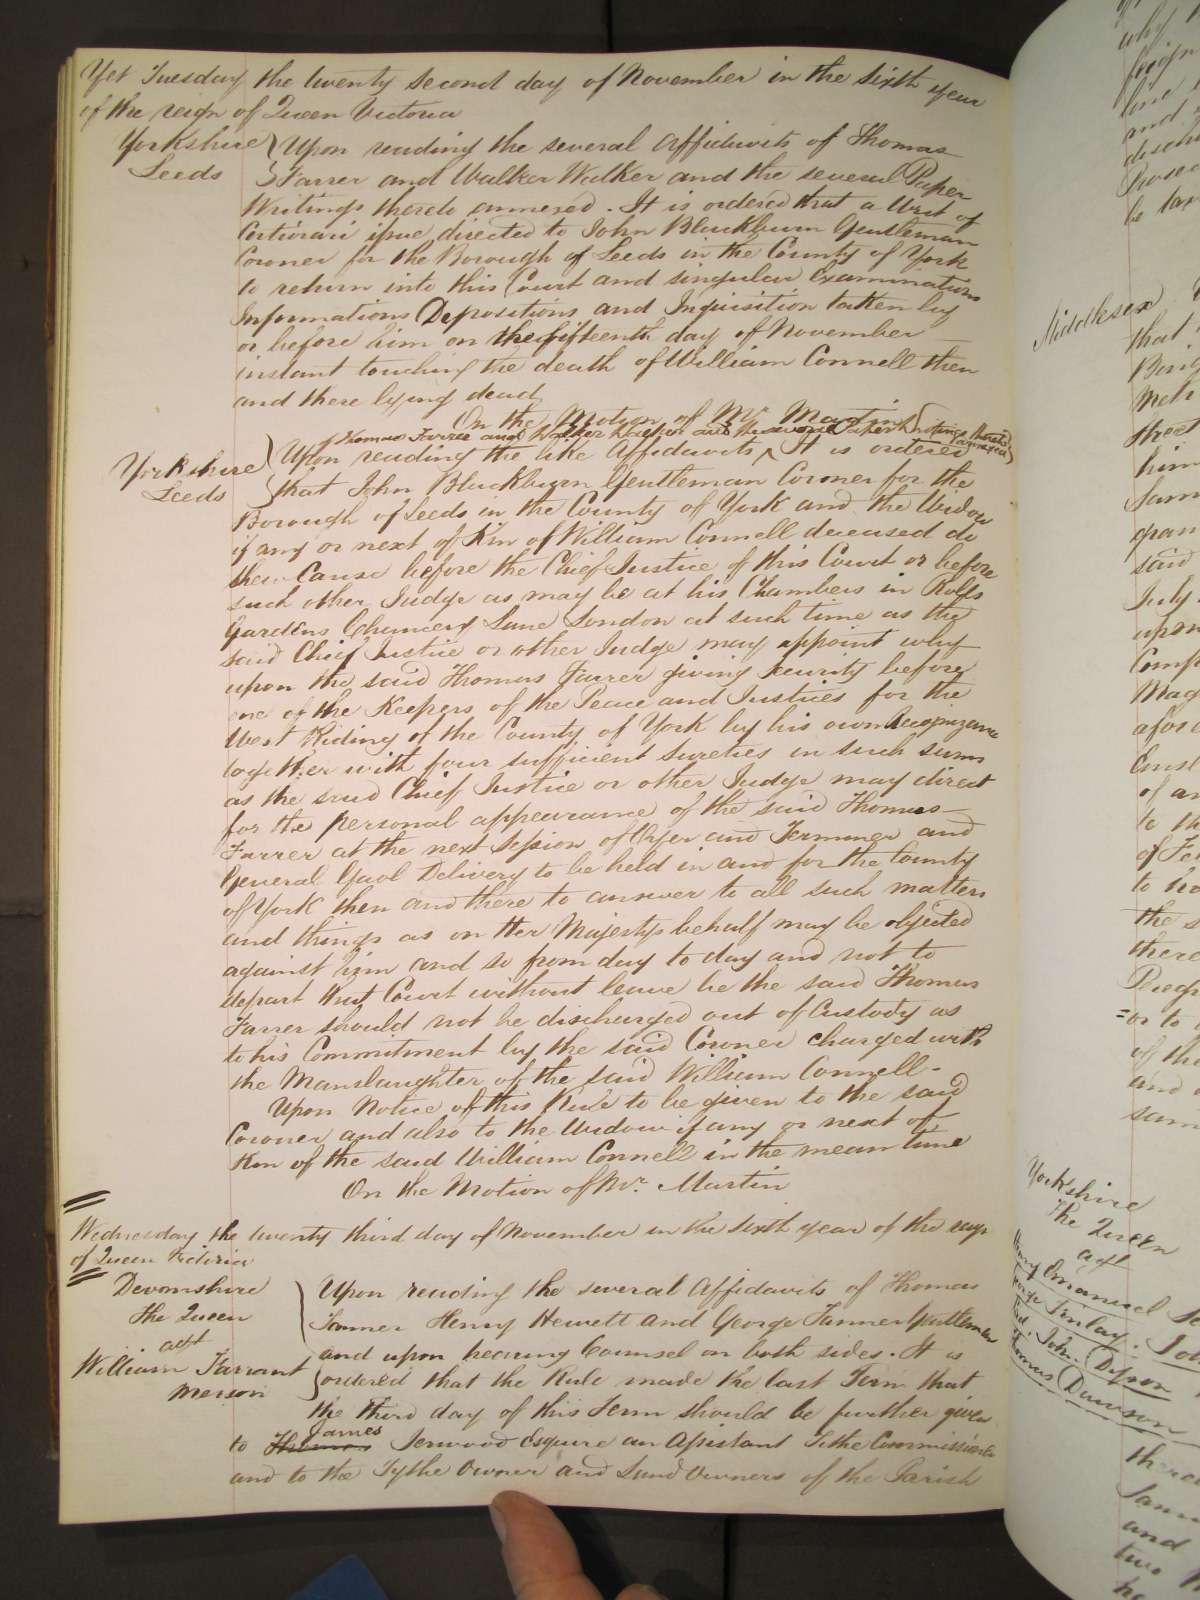 Yet Tuesday the twenty second day of November in the sixth year
of the reign of Queen Victoria
Yorkshire
Leeds
Upon reading the several Affidavits of Thomas
Farrer and Walker Walker and the several Paper
Writings thereto annexed. It is ordered that a Writ of
Certiorari issue directed to John Blackburn Gentleman
Coroner for the Borough of Leeds in the County of York
to return into this Court and singular Examinations
Informations Depositions and Inquisition taken by
or before him on the fifteenth day of November
instant touching the death of William Connell then
and there lying dead
On the Motion of Mr. Martin
Yorkshire
Leeds
of Thomas Farrer and Walker Walker and the several Paper Writings thereto annexed
Upon reading the like Affidavits It is ordered
that John Blackburn Gentleman Coroner for the
Borough of Leeds in the County of York and the Widow
if any or next of Kin of William Connell deceased do
shew Cause before the Chief Justice of this Court or before
such other Judge as may be at his Chambers in Rolls
Gardens Chancery Lane London at such time as the
said Chief Justice or other Judge may appoint why
upon the said Thomas Farrer giving security before
one of the Keepers of the Peace and Justices for the
West Riding of the County of York by his own Recognizance
together with four sufficient sureties in such sums
as the said Chief Justice or other Judge may direct
for the personal appearance of the said Thomas
Farrer at the next Session of Oyer and Terminer and
General Gaol Delivery to be held in and for the County
of York then and there to answer to all such matters
and things as on Her Majestys behalf may be objected
against him and so from day to day and not to
depart that Court without leave he the said Thomas
Farrer should not be discharged out of Custody as
to his Commitment by the said Coroner charged with
the Manslaughter of the said William Connell -
Upon Notice of this Rule to be given to the said
Coroner and also to the Widow if any or next of
Kin of the said William Connell in the mean time
On the Motion of Mr. Martin
Wednesday the twenty third day of November in the sixth year of the reign
of Queen Victoria
Devonshire
The Queen
agt
William Tarrant
Merson
Upon reading the several Affidavits of Thomas
Tanner Henry Hewett and George Tanner Gentlemen
and upon hearing Counsel on both sides. It is
ordered that the Rule made the last Term that
the third day of this Term should be further given
James
to Thomas Jerwood Esquire an Assistant Tithe Commissioner
and to the Tythe Owner and Land Owners of the Parish
Middlesex
Yorkshire
The Queen
agt